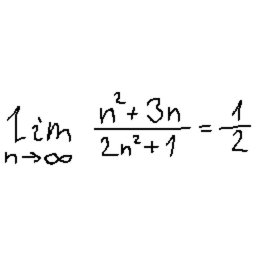 lim n→∞ (n²+3n)/(2n²+1) = 1/2